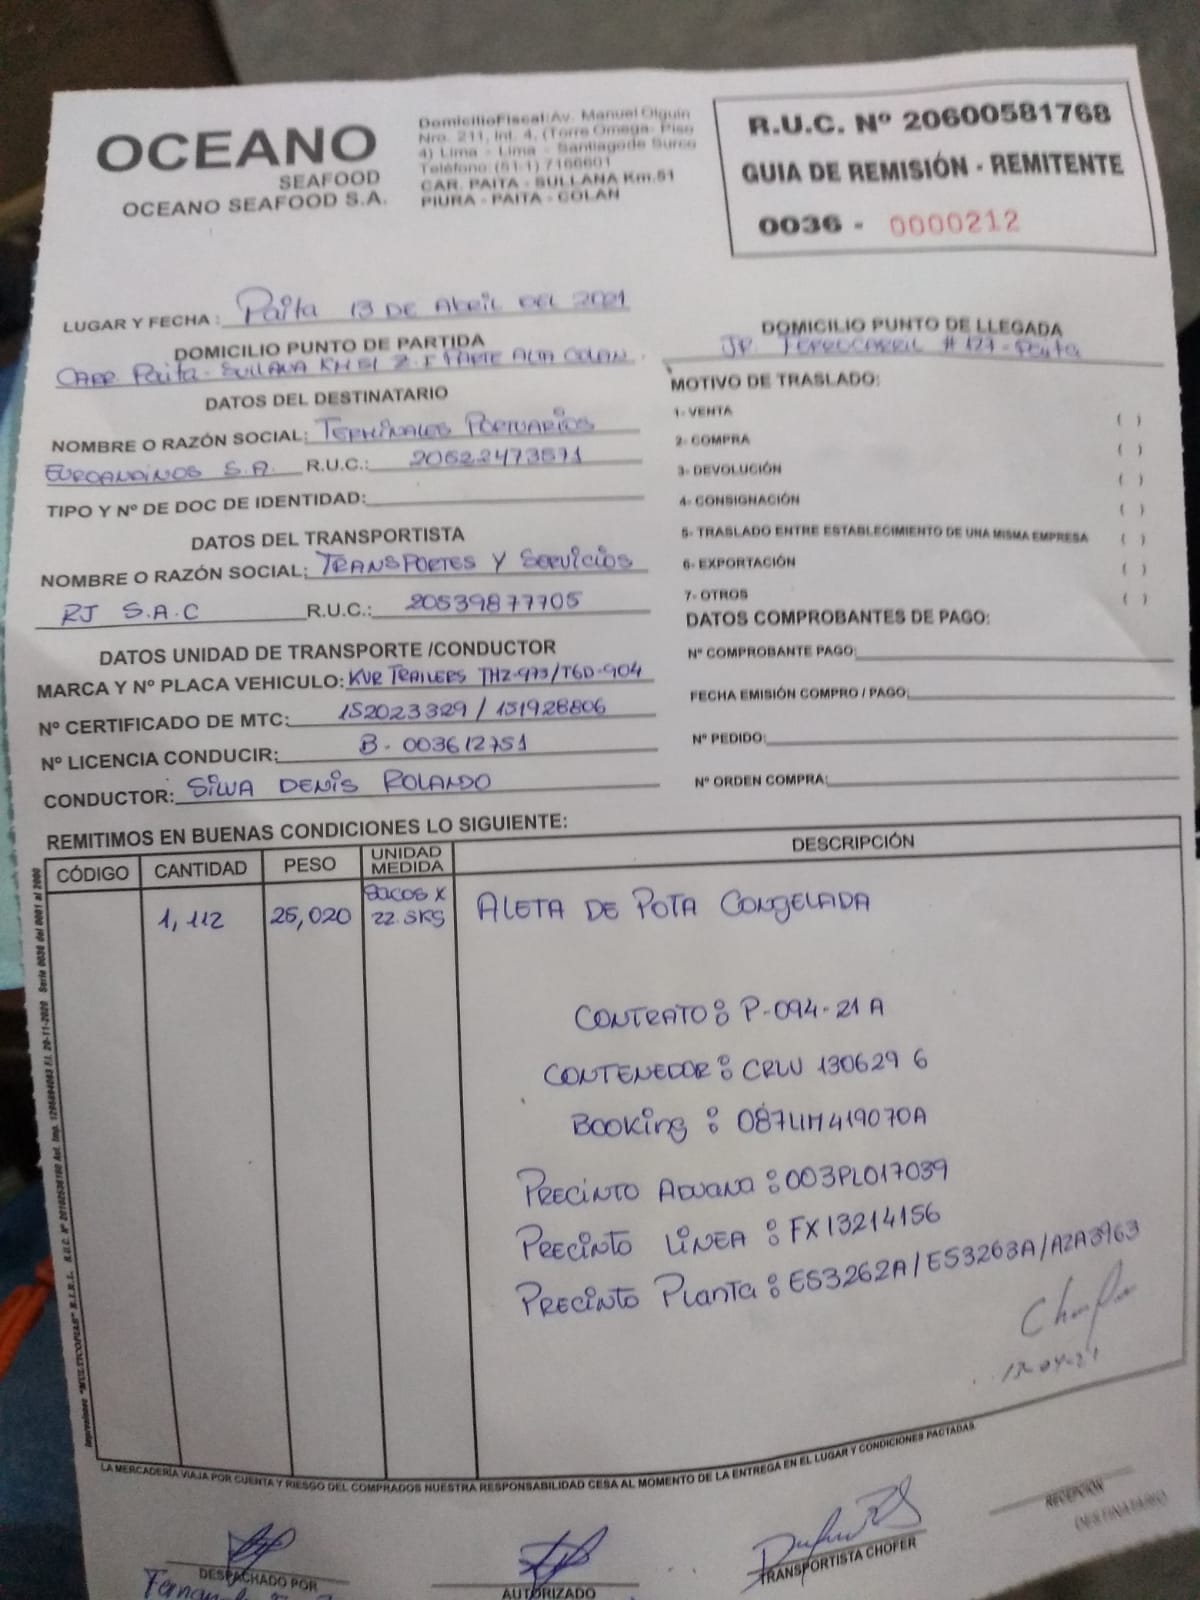 OCEANO
SEAFOOD
OCEANO SEAFOOD S.A.
DomicilioFiscal:Av. Manuel Olguin
Nro. 211, Int. 4, (Torre Omega- Piso
4) Lima - Lima - Santiagode Surco
Teléfono: (51-1) 7166601
CAR. PAITA - SULLANA Km.51
PIURA - PAITA - COLAN
R.U.C. Nº 20600581768
GUIA DE REMISIÓN - REMITENTE
0036 - 0000212
LUGAR Y FECHA : Paita 13 DE Abril DEL 2021
DOMICILIO PUNTO DE PARTIDA
CARR. Paita- SULLANA KM 51 Z.I PARTE ALTA COLAN.
DOMICILIO PUNTO DE LLEGADA
JR. FERROCARRIL # 127-Paita
DATOS DEL DESTINATARIO
NOMBRE O RAZÓN SOCIAL: TERMINALES PORTUARIOS
EUROANDINOS S.A. R.U.C.: 20522473571
TIPO Y Nº DE DOC DE IDENTIDAD:
DATOS DEL TRANSPORTISTA
NOMBRE O RAZÓN SOCIAL: TRANSPORTES Y SERVICIOS
RJ S.A.C R.U.C.: 20539877705
DATOS UNIDAD DE TRANSPORTE /CONDUCTOR
MARCA Y Nº PLACA VEHICULO: KVR TRAILERS THZ-973/T6D-904
Nº CERTIFICADO DE MTC: 152023329 / 151928806
Nº LICENCIA CONDUCIR: B-003612751
CONDUCTOR: SILVA DENIS ROLANDO
MOTIVO DE TRASLADO:
1- VENTA ( )
2- COMPRA ( )
3- DEVOLUCIÓN ( )
4- CONSIGNACIÓN ( )
5- TRASLADO ENTRE ESTABLECIMIENTO DE UNA MISMA EMPRESA ( )
6- EXPORTACIÓN ( )
7- OTROS ( )
DATOS COMPROBANTES DE PAGO:
Nº COMPROBANTE PAGO:
FECHA EMISIÓN COMPRO / PAGO:
Nº PEDIDO:
Nº ORDEN COMPRA:
REMITIMOS EN BUENAS CONDICIONES LO SIGUIENTE:
CÓDIGO CANTIDAD PESO UNIDAD MEDIDA DESCRIPCIÓN
1,112 25,020 SACOS X 22.5KG ALETA DE POTA CONGELADA
CONTRATO: P-094-21A
CONTENEDOR: CRLU 130629 6
Booking: 087LIM419070A
PRECINTO ADUANA: 003PL017039
PRECINTO LÍNEA: FX13214156
PRECINTO Planta: ES3262A/ES3263A/AZA3963
13-04-21
LA MERCADERÍA VIAJA POR CUENTA Y RIESGO DEL COMPRADOS NUESTRA RESPONSABILIDAD CESA AL MOMENTO DE LA ENTREGA EN EL LUGAR Y CONDICIONES PACTADAS
DESPACHADO POR
AUTORIZADO
TRANSPORTISTA CHOFER
RECEPCIÓN
DESTINATARIO